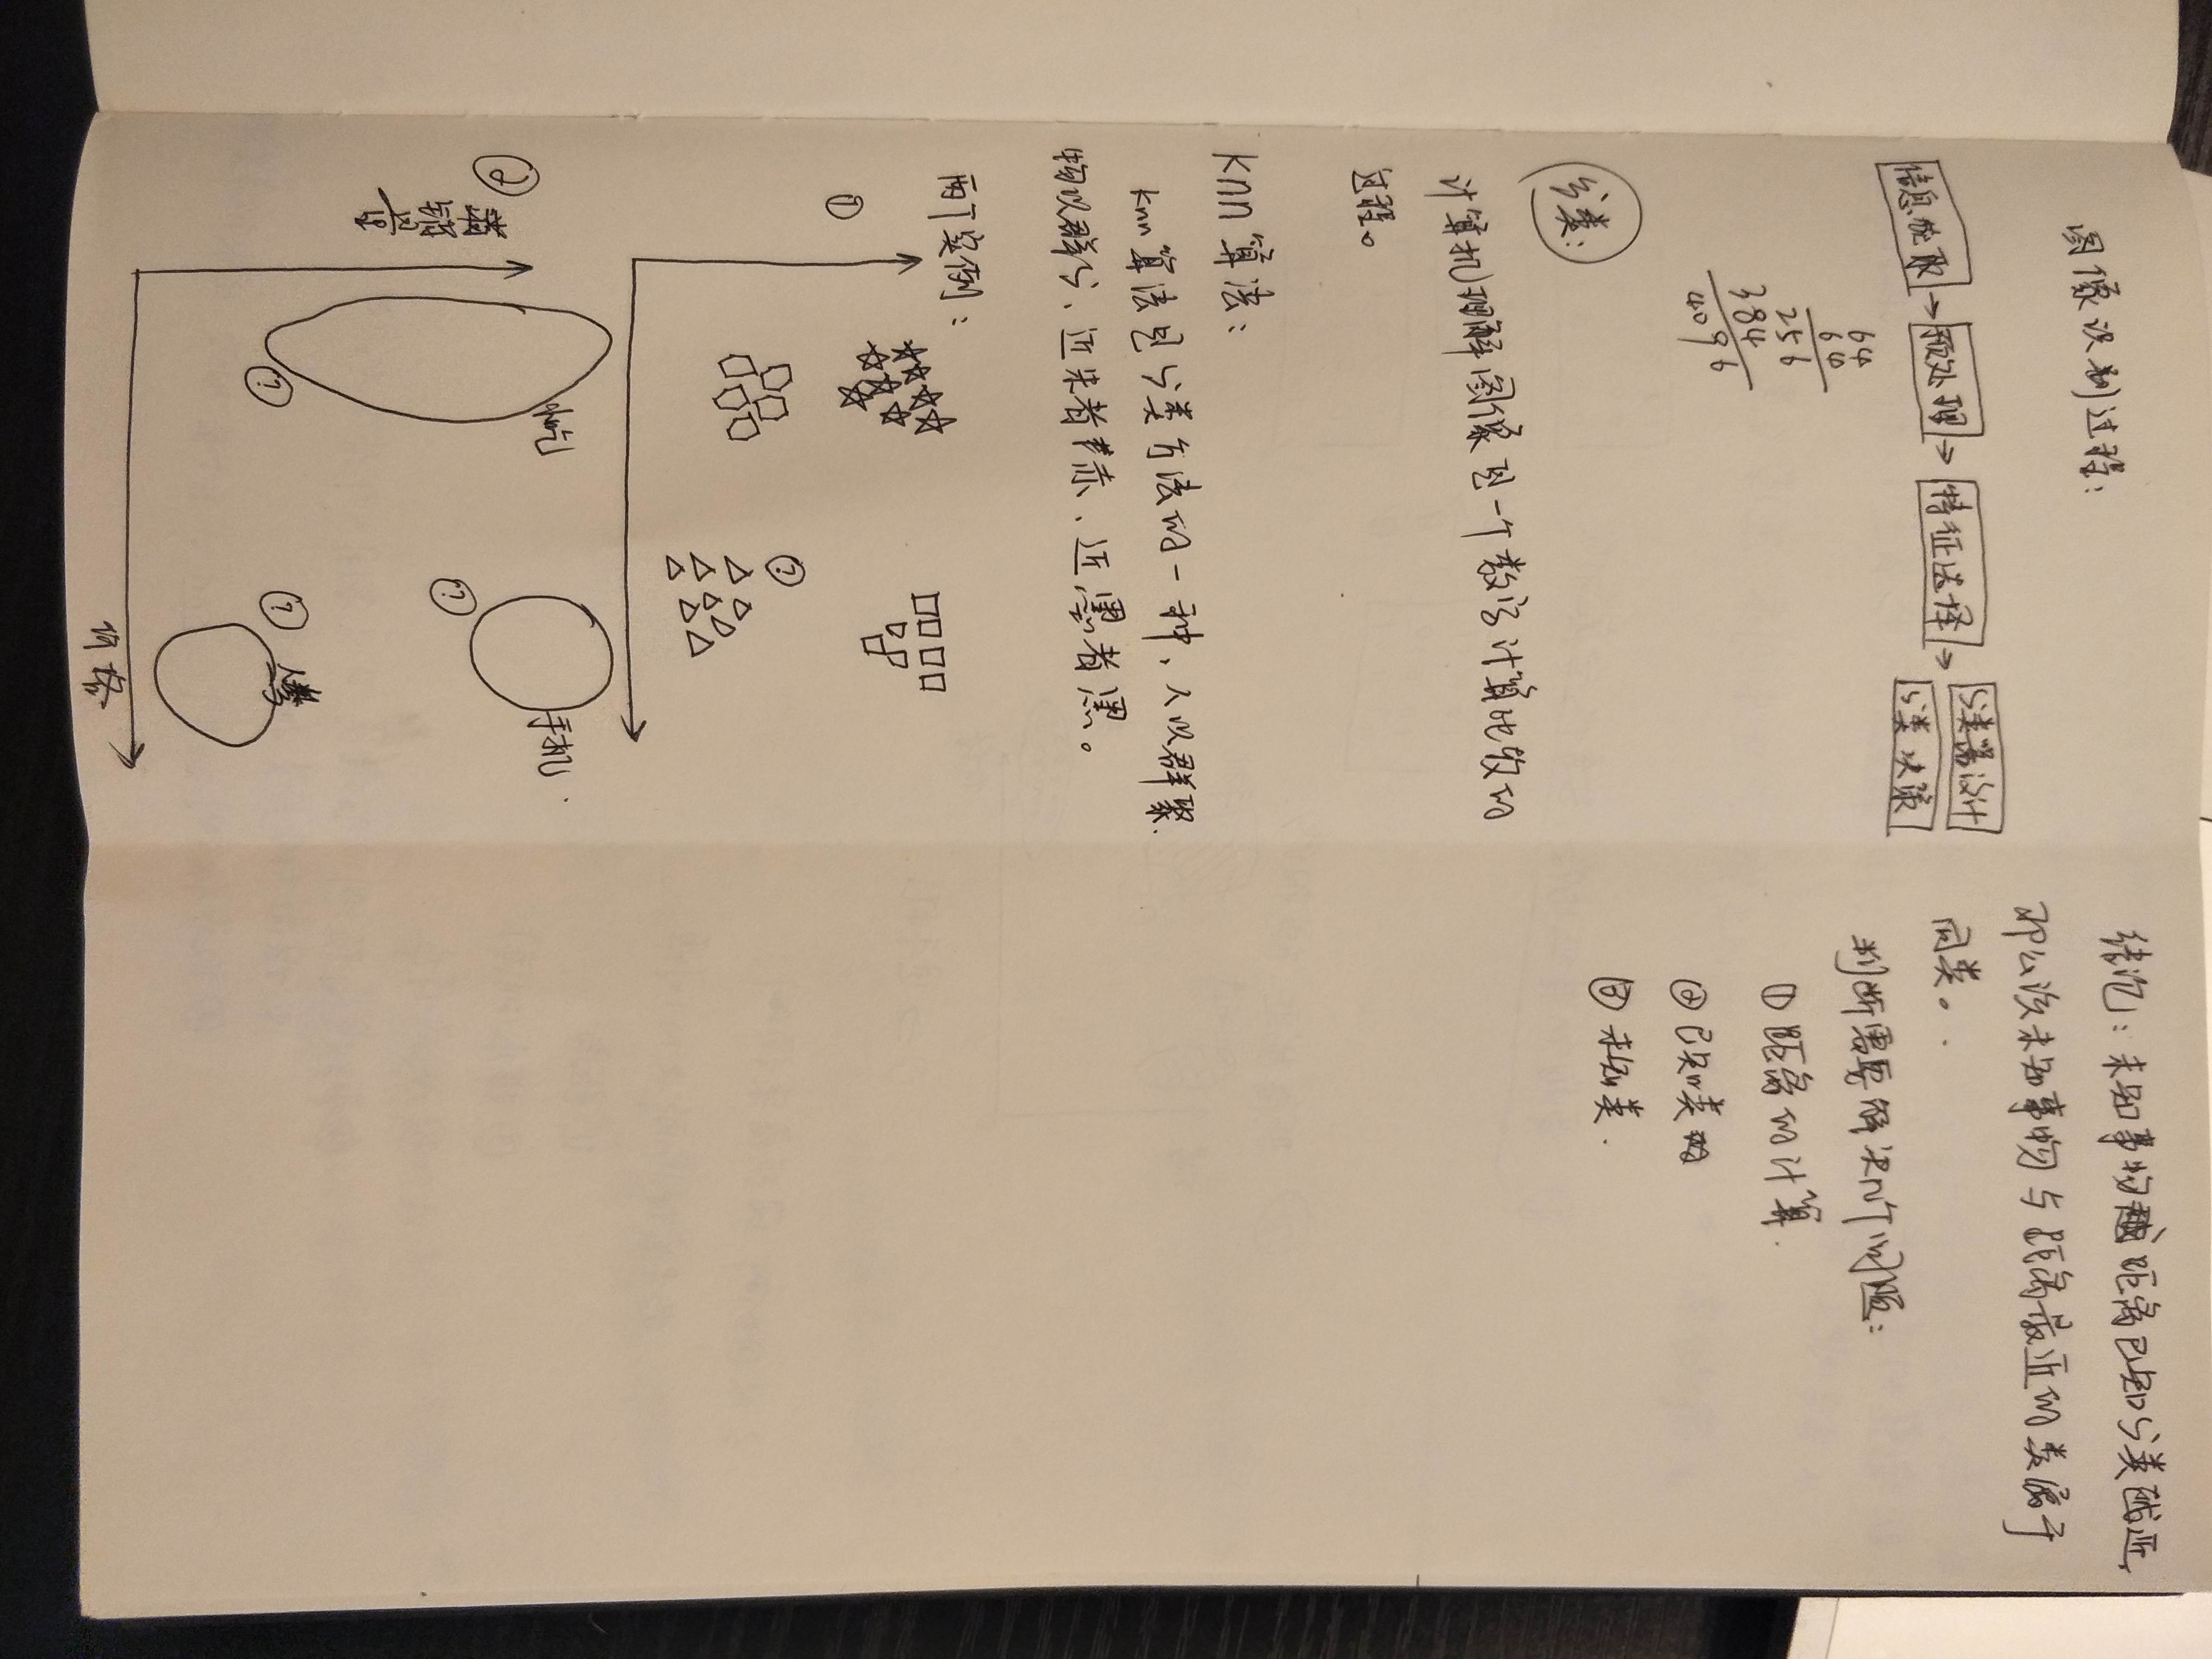 图像识别过程：
信息获取→预处理→特征选择→分类器设计
分类决策
64
64
256
384
4096
分类：
计算机理解图像是一个数字计算比较的
过程。
knn算法：
knn算法是分类方法的一种，人以群聚
物以群分、近朱者赤、近墨者黑。
两个案例：
①
?
②
销量
价格
?
?
?
手机
结论：未知事物距离已知分类越近，
那么该未知事物与距离最近的类属于
同类。
判断需要解决几个问题：
①距离的计算.
②已知类的
③未知类.